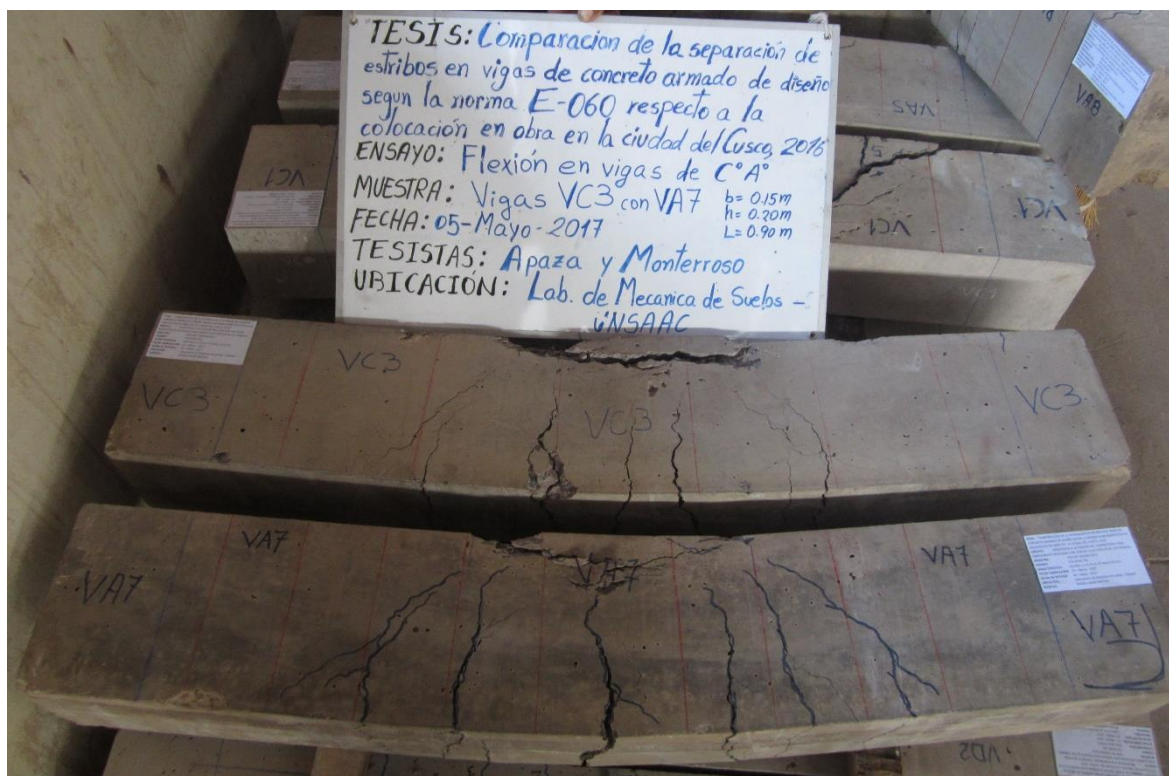 TESIS: Comparacion de la separación de
estribos en vigas de concreto armado de diseño
segun la norma E-060 respecto a la
colocación en obra en la ciudad del Cusco, 2016
ENSAYO: Flexión en vigas de C°A°
MUESTRA: Vigas VC3 con VA7
b= 0.15m
h= 0.20m
L= 0.90m
FECHA: 05-Mayo-2017
TESISTAS: Apaza y Monterroso
UBICACIÓN: Lab. de Mecanica de Suelos -
UNSAAC
VA8
VA5
VC1
VC1
VC1
VC1
VC3
VC3
VC3
VC3
VA7
VA7
VA7
VA7
VA7
VD2